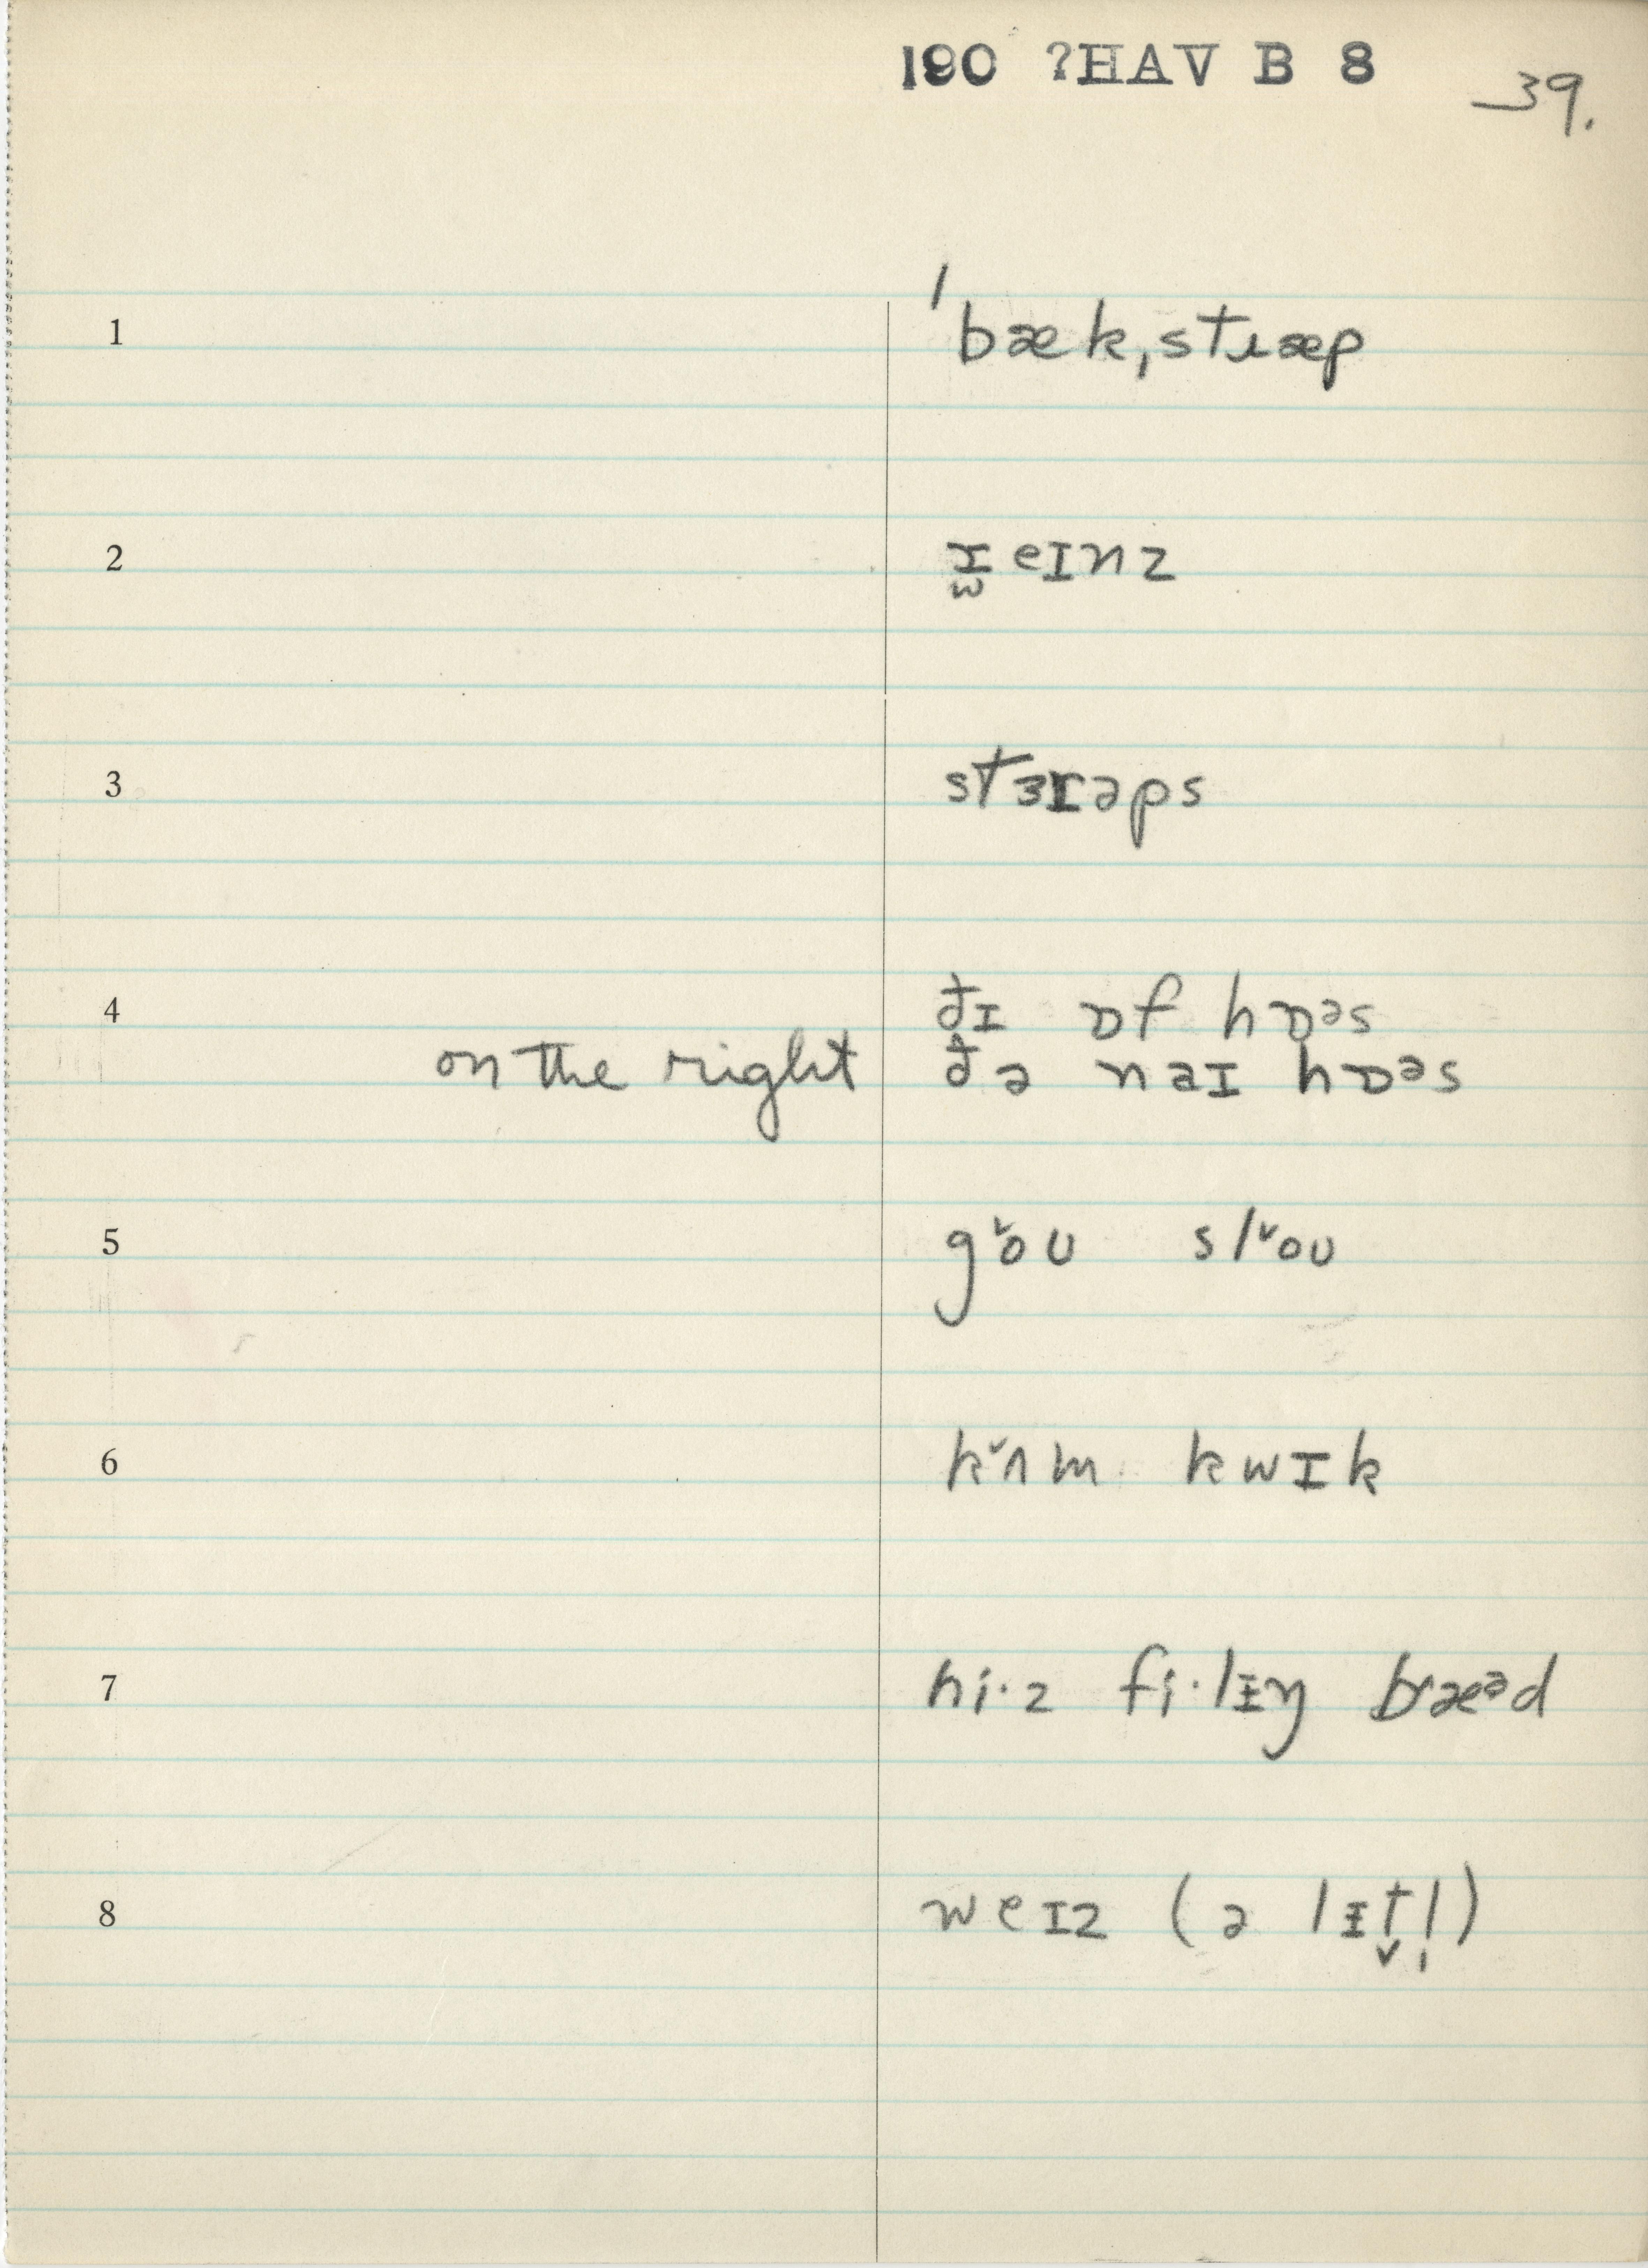 190 ?HAV B 8
39.
1 ˈbæk,stɹæp
2 ɪ̯eɪnz
3 stɜrəps
4 ðɪ ɒf hɒᵊs
on the right ðə naɪ hɒᵊs
5 gˇoʊ slˇoʊ
6 kˇʌm kwɪk
7 hi·z fi·lɨŋ bræᵊd
8 weɪz (ə lɨt̬l̩)